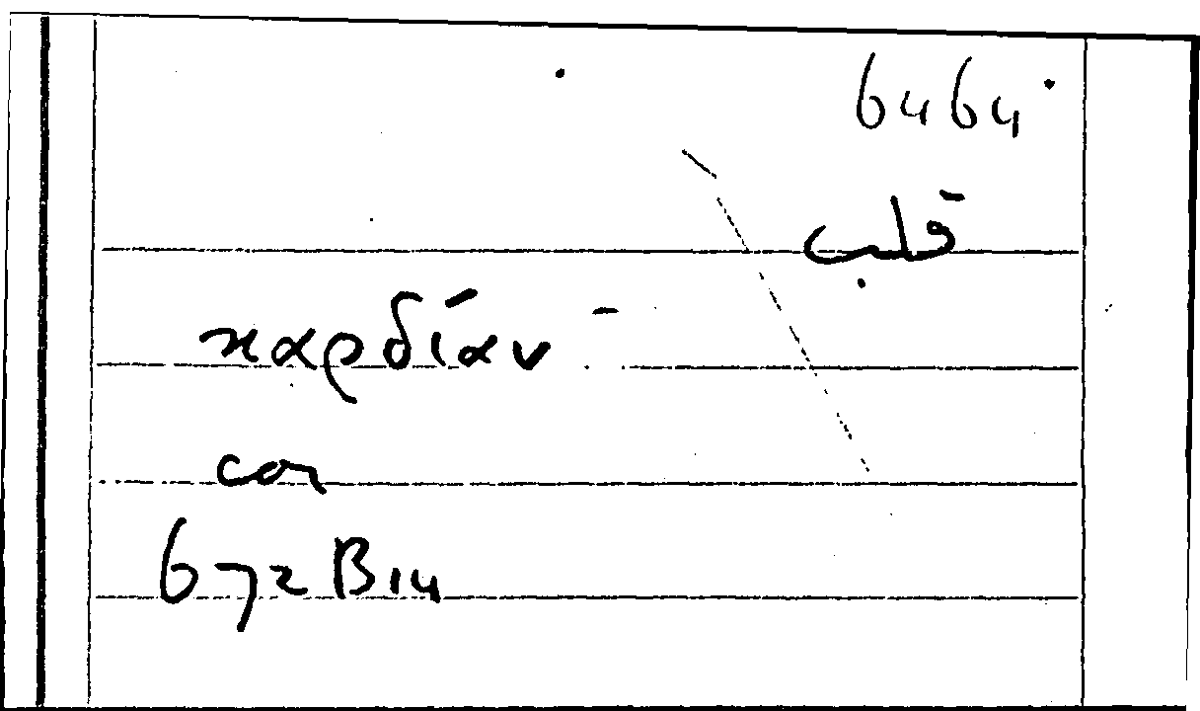 6464
قلب
καρδίαν
cor
672B14